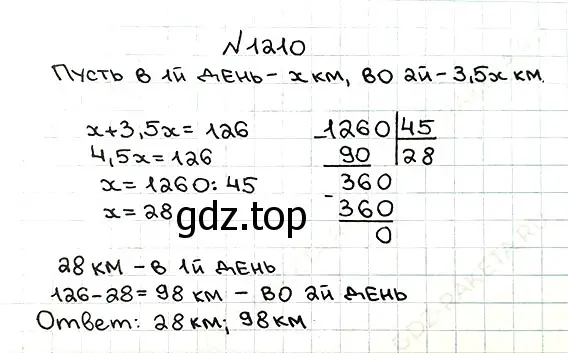 №1210
Пусть в 1й день - x км, во 2й - 3,5x км.
x+3,5x=126
4,5x=126
x=1260:45
x=28
1260 45
90 28
360
- 360
0
gdz.top
28 км - в 1й день
126-28=98 км - во 2й день
Ответ: 28 км; 98 км
GDZ-RAKETA.RU